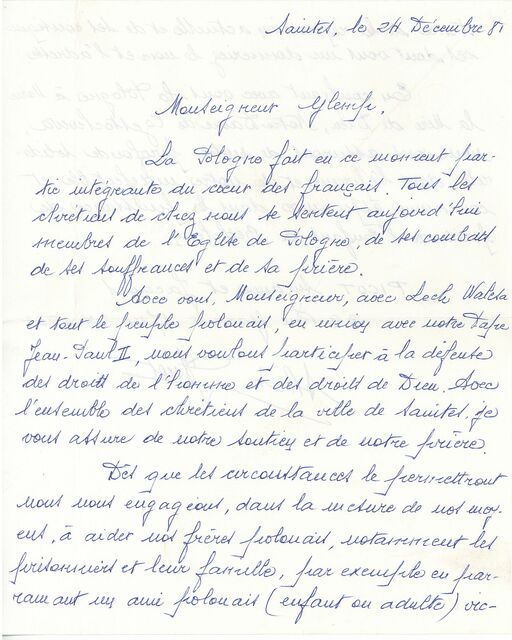 Saintes, le 24 Décembre 81
Monseigneur Glemp,
La Pologne fait en ce moment par-
tie intégrante du cœur des français. Tous les
chrétiens de chez nous se sentent aujourd'hui
membres de l'Eglise de Pologne, de ses combats
de ses souffrances et de sa prière.
Avec vous, Monseigneur, avec Lech Walesa
et tout le peuple polonais, en union avec notre Pape
Jean-Paul II, nous voulons participer à la défense
des droits de l'homme et des droits de Dieu. Avec
l'ensemble des chrétiens de la ville de Saintes, je
vous assure de notre soutien et de notre prière.
Dès que les circonstances le permettront
nous nous engageons, dans la mesure de nos moy-
ens, à aider nos frères polonais, notamment les
prisonniers et leur famille, par exemple en par-
rainant un ami polonais (enfant ou adulte) vic-